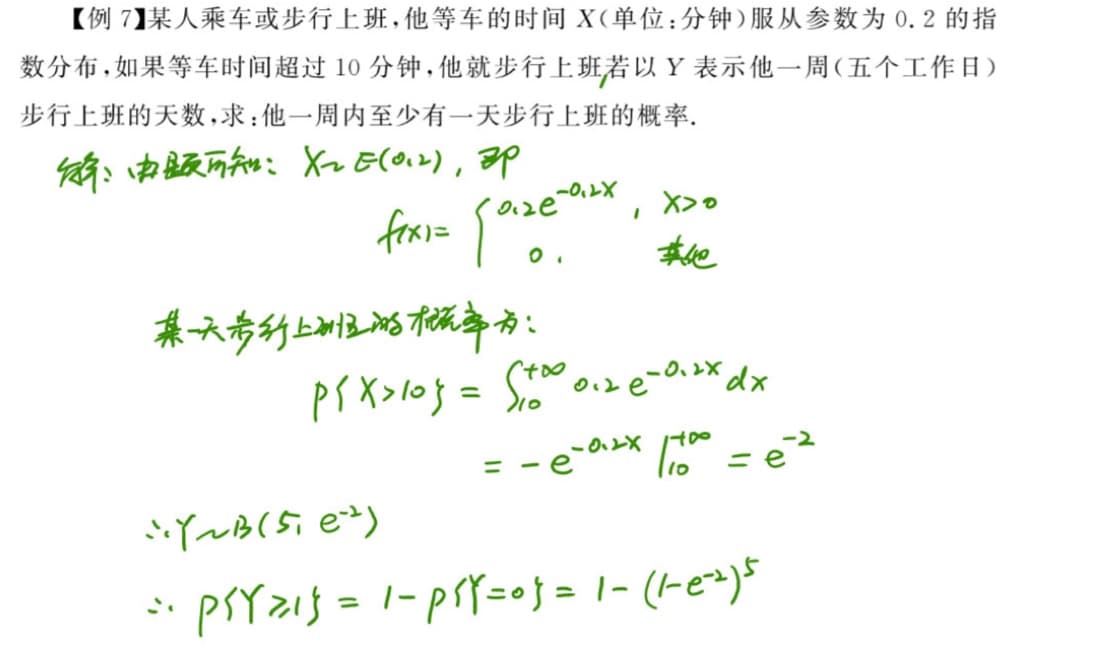 【例 7】某人乘车或步行上班,他等车的时间 X(单位:分钟)服从参数为 0.2 的指
数分布,如果等车时间超过 10 分钟,他就步行上班,若以 Y 表示他一周(五个工作日)
步行上班的天数,求:他一周内至少有一天步行上班的概率.
解: 由题可知: X~E(0.2), 即
f(x)= { 0.2e^{-0.2x}, x>0
0, 其他
某一天步行上班的概率为:
P{X>10} = ∫_{10}^{+∞} 0.2e^{-0.2x}dx
= -e^{-0.2x} |_{10}^{+∞} = e^{-2}
∴Y~B(5, e^{-2})
∴ P{Y≥1} = 1-P{Y=0} = 1-(1-e^{-2})^5